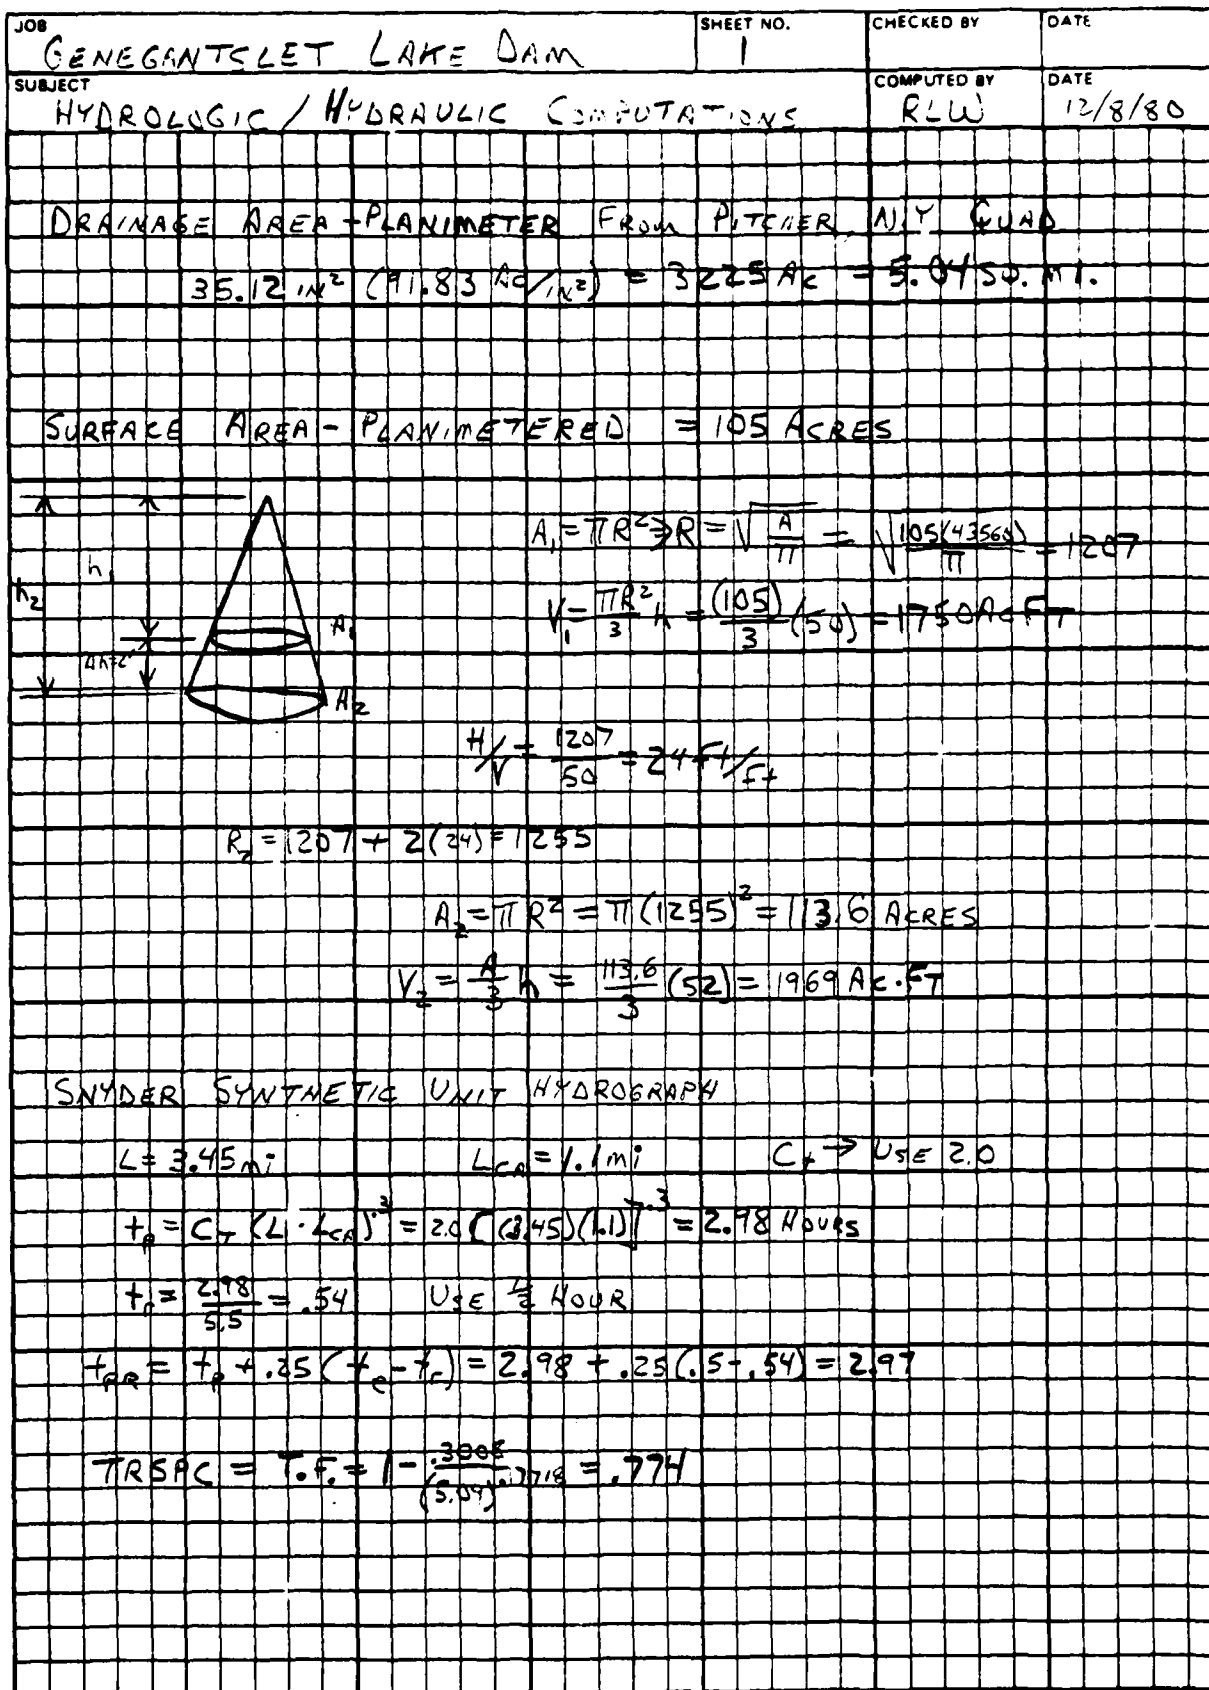 JOB
GENEGANTSLET LAKE DAM
SHEET NO.
1
CHECKED BY
DATE
SUBJECT
HYDROLOGIC / HYDRAULIC COMPUTATIONS
COMPUTED BY
RLW
DATE
12/8/80
DRAINAGE AREA - PLANIMETER FROM PITCHER, N.Y QUAD
35.12 IN² (91.83 AC/IN²) = 3225 AC = 5.04 SQ. MI.
SURFACE AREA - PLANIMETERED = 105 ACRES
h₂
h₁
Δh=2'
A₁
A₂
A₁ = πR² ⇒ R = √(A/π) = √(105(43560)/π) = 1207
V₁ = πR²/3 h = (105)/3 (50) = 1750 AC FT
H/V = 1207/50 = 24 Ft/Ft
R₂ = 1207 + 2(24) = 1255
A₂ = πR² = π(1255)² = 113.6 ACRES
V₂ = A/3 h = 113.6/3 (52) = 1969 AC.FT
SNYDER SYNTHETIC UNIT HYDROGRAPH
L = 3.45 mi LCA = 1.1 mi Ct → USE 2.0
tp = CT (L · LCA)^.3 = 2.0 [(3.45)(1.1)]^.3 = 2.98 HOURS
tr = 2.98/5.5 = .54 USE ½ HOUR
tPR = tp + .25 (te - tr) = 2.98 + .25 (.5 - .54) = 2.97
TRSPC = T.F. = 1 - .3008/(5.04)^.17718 = .774